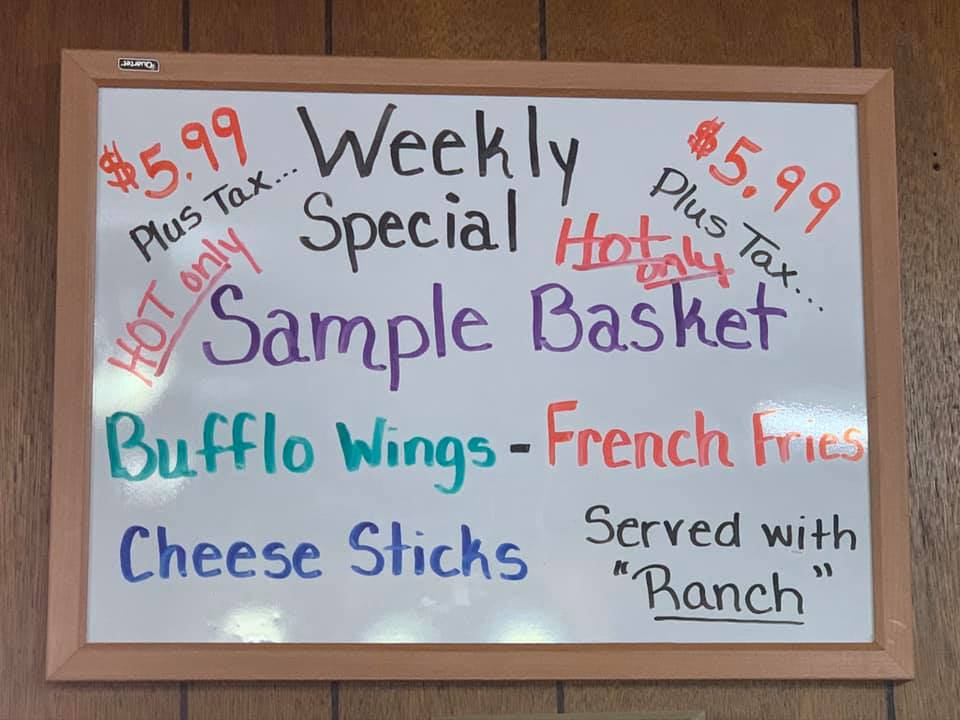 Quartet
$5.99
Plus Tax...
HOT only
Weekly
Special
$5.99
Plus Tax...
Hot only
Sample Basket
Bufflo Wings - French Fries
Cheese Sticks
Served with
"Ranch"